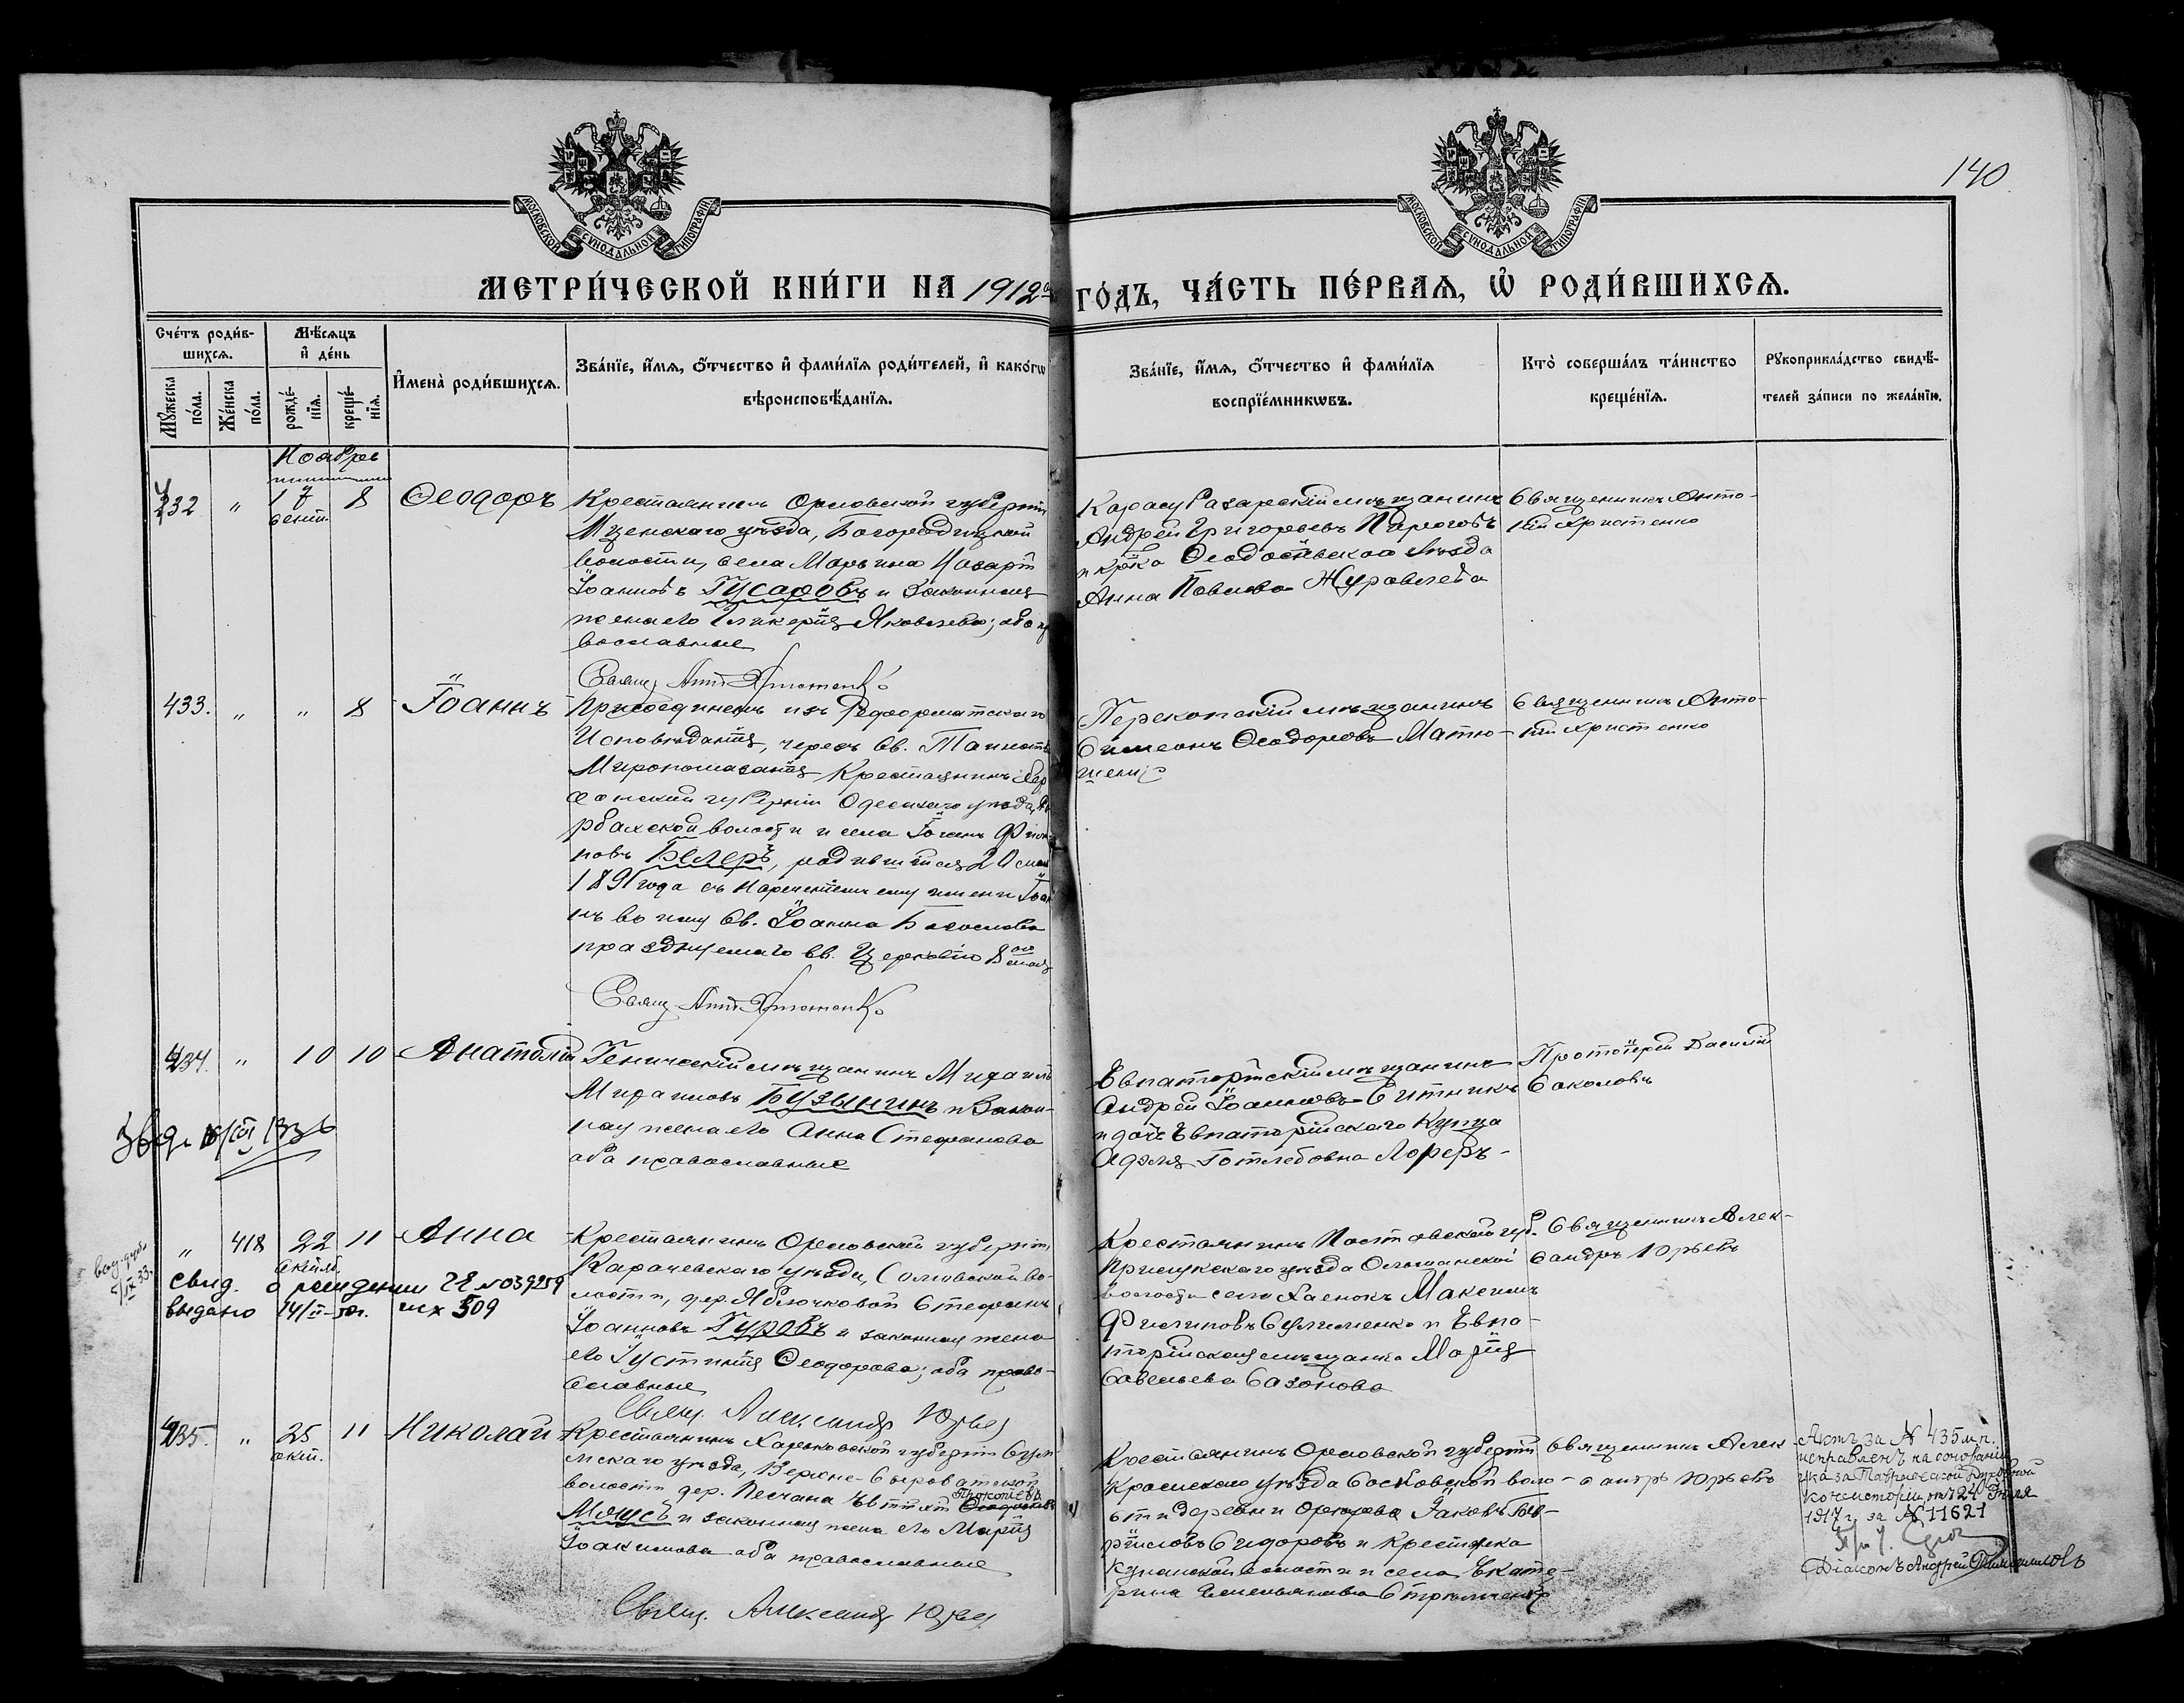 140
МОСКОВСКОЙ СѴНОДАЛЬНОЙ ТИПОГРАФІИ
МОСКОВСКОЙ СѴНОДАЛЬНОЙ ТИПОГРАФІИ
МЕТРИ́ЧЕСКОЙ КНИ́ГИ НА 1912й ГО́ДЪ, ЧА́СТЬ ПЕ́РВАѦ, Ѡ҆ РОДИ́ВШИХСѦ.
Сче́тъ роди́в-
шихсѧ.
Мѣ́сѧцъ
и҆ де́нь
Мꙋ́жеска
по́ла.
Же́нска
по́ла.
рожде́-
нїѧ.
креще́-
нїѧ.
И҆мена̀ роди́вшихсѧ.
Зва́нїе, и҆́мѧ, ѻ҆́тчество и҆ фами́лїѧ роди́телей, и҆ како́гѡ
вѣроисповѣ́данїѧ.
Зва́нїе, и҆́мѧ, ѻ҆́тчество и҆ фами́лїѧ
воспрїе́мникѡвъ.
Кто̀ соверша́лъ та́инство
креще́нїѧ.
Рꙋкоприкла́дство свидѣ́-
телей за́писи по жела́нїю.
Ноябрь
432 " 17 сент. 8 Ѳеодоръ
Крестьянинъ Орловской губерніи
Мценскаго уѣзда, Богородицкой
волости, села Марьина
Іоанновъ Гусаровъ и законная
жена его Гликерія Яковлева; оба пра
вославные
Свящ. Ант. Христенко
Карасубазарскій мѣщанинъ
Андрей Григорьевъ Пироговъ
и кр-ка Ѳеодосійскаго уѣзда
Анна Павлова Журавлева
Священникъ Анто-
ній Христенко
433. " " 8 Іоаннъ
Присоединенъ изъ Реформатскаго
Исповѣданія, чрезъ Св. Таинство
Миропомазанія Крестьянинъ Хер
сонской губерніи Одесскаго уѣзда,
рбахской волости и села Іоганъ Филип
повъ Белеръ, родившійся 20 мая
1891 года съ нареченіемъ ему имени Іоан
нъ во имя Св. Іоанна Богослова
празднуемаго Св. Церковію 8го мая
Свящ. Ант. Христенко
Перекопскій мѣщанинъ
Симеонъ Ѳеодоровъ Матю-
Священникъ Анто-
ній Христенко
434. " 10 10 Анатолій
Геническій мѣщанинъ Михаилъ
Михаиловъ Бузынинъ и закон-
ная жена его Анна Стефанова
оба православные
Евпаторійскій мѣщанинъ
Андрей Іоанновъ Ситникъ
и дочь Евпаторійскаго купца
Готлебовна Лореръ
Протоіерей Василій
Соколовъ
" 418 22 октяб. 11 Анна
свид. о рождении № 039259
выдано 509
Крестьянинъ Орловской губерніи
Карачевскаго уѣзда, во-
лости, дер. Яблочковой Стефанъ
Іоанновъ Гуровъ и законная жена
его Іустинія Ѳеодорова; оба право-
славные
Свящ. Александръ Юрьев
Крестьянинъ Полтавской губ.
Прилукскаго уѣзда Ольшанской
волости села Максимъ
Филиповъ и Евпа-
торійская мѣщанка Марія
Савельева Сазонова
Священникъ Алек-
сандръ Юрьевъ
435. " 25 окт. 11 Николай
Крестьянинъ Харьковской губерніи Сум-
скаго уѣзда, Верхне-Сыроватской
волости дер. Песчана Евтихій
Прокопіевъ
и законная жена его Марія
Іоакимова оба православные
Свящ. Александръ Юрьев
Крестьянинъ Орловской губерніи
Кромскаго уѣзда Сосковской воло-
сти деревни Іаковъ Гав-
риловъ Сидоровъ и крестьянка
волости и села Екате-
рина Емельянова
Священникъ Алек
сандръ Юрьевъ
Актъ за № 435 м.п.
исправленъ на основаніи
указа Таврической Духовной
Консисторіи отъ 24
1917 г. за № 11621
Діаконъ Андрей